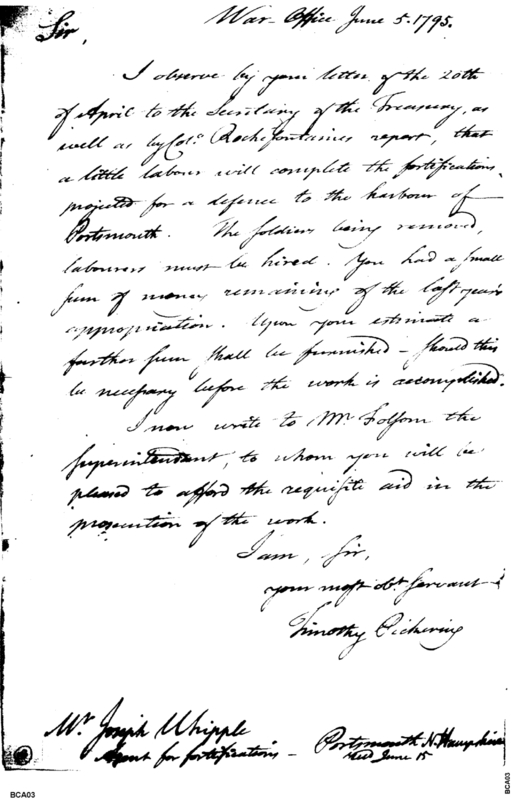 War-Office June 5. 1795.
Sir,
I observe by your letter of the 20th
of April to the Secretary of the Treasury, as
well as by Colo. Rochefontaines report, that
a little labour will complete the fortifications
projected for a defence to the harbour of
Portsmouth. The soldiers being removed,
labourers must be hired. You had a small
sum of money remaining of the last year's
appropriation. Upon your estimate a
further sum shall be furnished - should this
be necessary before the work is accomplished.
I now write to Mr. Folsom the
superintendant, to whom you will be
pleased to afford the requisite aid in the
prosecution of the work.
I am, Sir,
your most obt. servant
Timothy Pickering
Mr. Joseph Whipple
Agent for fortifications -
Portsmouth N. Hampshire
recd June 15
BCA03
BCA03